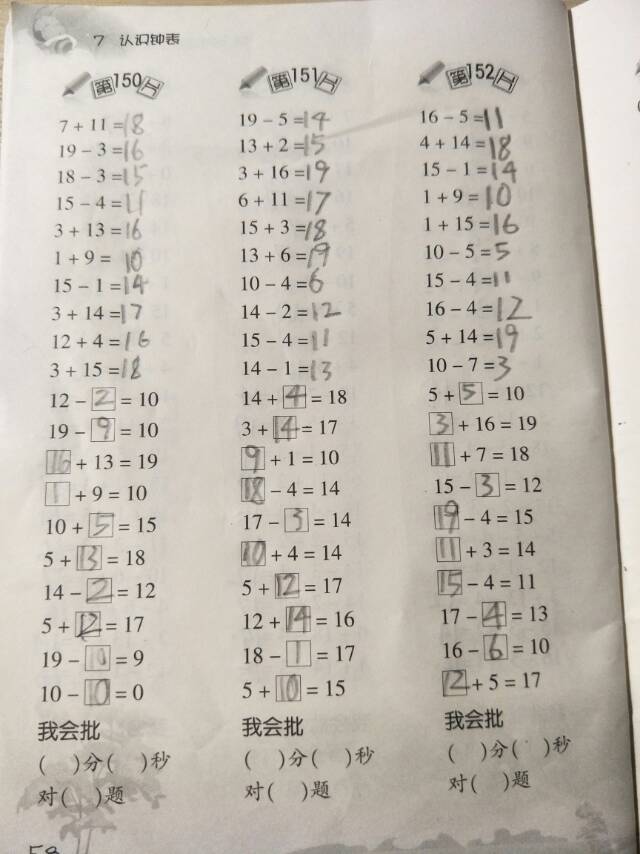 7 认识钟表
第150天
7 + 11 = 18
19 - 3 = 16
18 - 3 = 15
15 - 4 = 11
3 + 13 = 16
1 + 9 = 10
15 - 1 = 14
3 + 14 = 17
12 + 4 = 16
3 + 15 = 18
12 - 2 = 10
19 - 9 = 10
16 + 13 = 19
1 + 9 = 10
10 + 5 = 15
5 + 13 = 18
14 - 2 = 12
5 + 12 = 17
19 - 10 = 9
10 - 10 = 0
我会批
( )分( )秒
对( )题
第151天
19 - 5 = 14
13 + 2 = 15
3 + 16 = 19
6 + 11 = 17
15 + 3 = 18
13 + 6 = 19
10 - 4 = 6
14 - 2 = 12
15 - 4 = 11
14 - 1 = 13
14 + 4 = 18
3 + 14 = 17
9 + 1 = 10
18 - 4 = 14
17 - 3 = 14
10 + 4 = 14
5 + 12 = 17
12 + 14 = 16
18 - 1 = 17
5 + 10 = 15
我会批
( )分( )秒
对( )题
第152天
16 - 5 = 11
4 + 14 = 18
15 - 1 = 14
1 + 9 = 10
1 + 15 = 16
10 - 5 = 5
15 - 4 = 11
16 - 4 = 12
5 + 14 = 19
10 - 7 = 3
5 + 5 = 10
3 + 16 = 19
11 + 7 = 18
15 - 3 = 12
19 - 4 = 15
11 + 3 = 14
15 - 4 = 11
17 - 4 = 13
16 - 6 = 10
12 + 5 = 17
我会批
( )分( )秒
对( )题